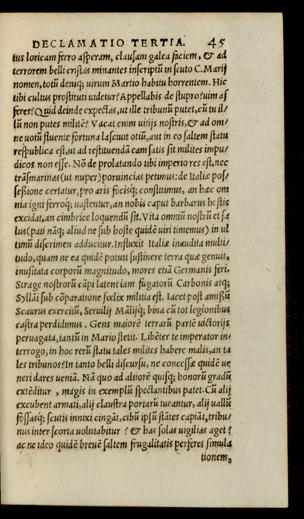 DECLAMATIO TERTIA. 45
tus loricam ferro asperam, clausam galea faciem, & ad
terrorem belli cristas minantes inscriptū in scuto C. Marij
nomen, totū deniq; uirum Martio habitu horrentem. Hic
tibi cultus prostituti uidetur? Appellabis de stupro? uim af
feres? Quid deinde expectas, ut ille tribunū putet, cū tu il-
lū non putes militē? Vacat enim uitijs nostris, & ad om-
ne uotū fluente fortuna lasciuit otiū, aut in eo saltem statu
respublica est, ut ad restituendā eam satis sit milites impu-
dicos non esse. Nō de prolatando tibi imperio res est, nec
trāsmarinas (ut nuper) prouincias petimus: de Italiæ pos-
sessione certatur, pro aris focisq; constitimus, an hæc om
nia igni ferroq; uastentur, an nobis caput barbarus hostis
excidat, an cimbrice loquendū sit. Vita omniū nostrū et sa
lus (pati nāq; aliud ne sub hoste quidē uiri timemus) in ul
timū discrimen adducitur. Influxit Italiæ inaudita multi
tudo, quam ne ea quidē potuit sustinere terra quæ genuit,
inusitata corporū magnitudo, mores etiā Germanis feri.
Strage nostrorū cāpi latent iam fugatorū Carbonis atq;
Syllāi sub cōparatione fœlix militia est. Iacet post amissū
Scaurus exercitū, Seruilij Mālijq; bina cū tot legionibus
castra perdidimus. Gens maiore terrarū parte uictorijs
peruagata, tantū in Mario stetit. Libēter te imperator in
terrogo, in hoc rerū statu tales milites habere malis, an ta
les tribunos? In tanto belli discursu, ne concessæ quidē ue
neri dares ueniā. Nā quo ad altiorē quisq; honorū gradū
extēditur, magis in exemplū spectantibus patet. Cū alij
excubent armati, alij claustra portarū tueantur, alij uallū
fossasq; scutis innixi cingāt, cibū ipsū stātes capiāt, tribu
nus inter scorta uolutabitur? & has solas uigilias aget?
ac ne ideo quidē breuē saltem frugalitatis perferet simula
tionem,